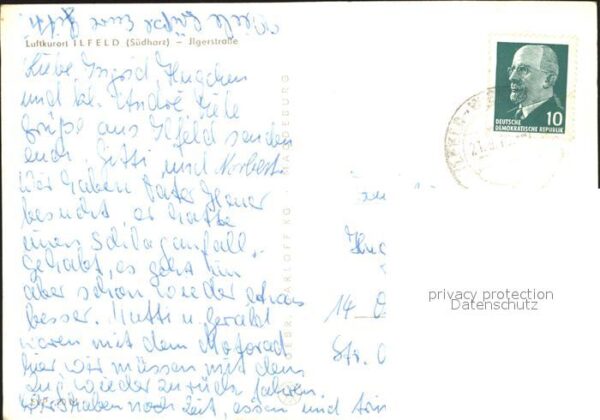 Viele Grüße Eure Gitti
Luftkurort ILFELD (Südharz) — Ilgerstraße
Liebe Ingrid, Hugchen
und kl. André Viele
Grüße aus Ilfeld senden
euch, Gitti, und Norbert
Wir haben Vater
besucht, er hatte
einen Schlaganfall
gehabt, es geht ihm
aber schon wieder etwas
besser. Mutti u. Gerald
waren mit dem Motorad
hier, wir müssen mit dem
Zug wieder zurück fahren.
Wir haben noch Zeit, essen und trin
GEBR. GARLOFF KG. MAGDEBURG
10
DEUTSCHE
DEMOKRATISCHE REPUBLIK
14
Str.
privacy protection
Datenschutz